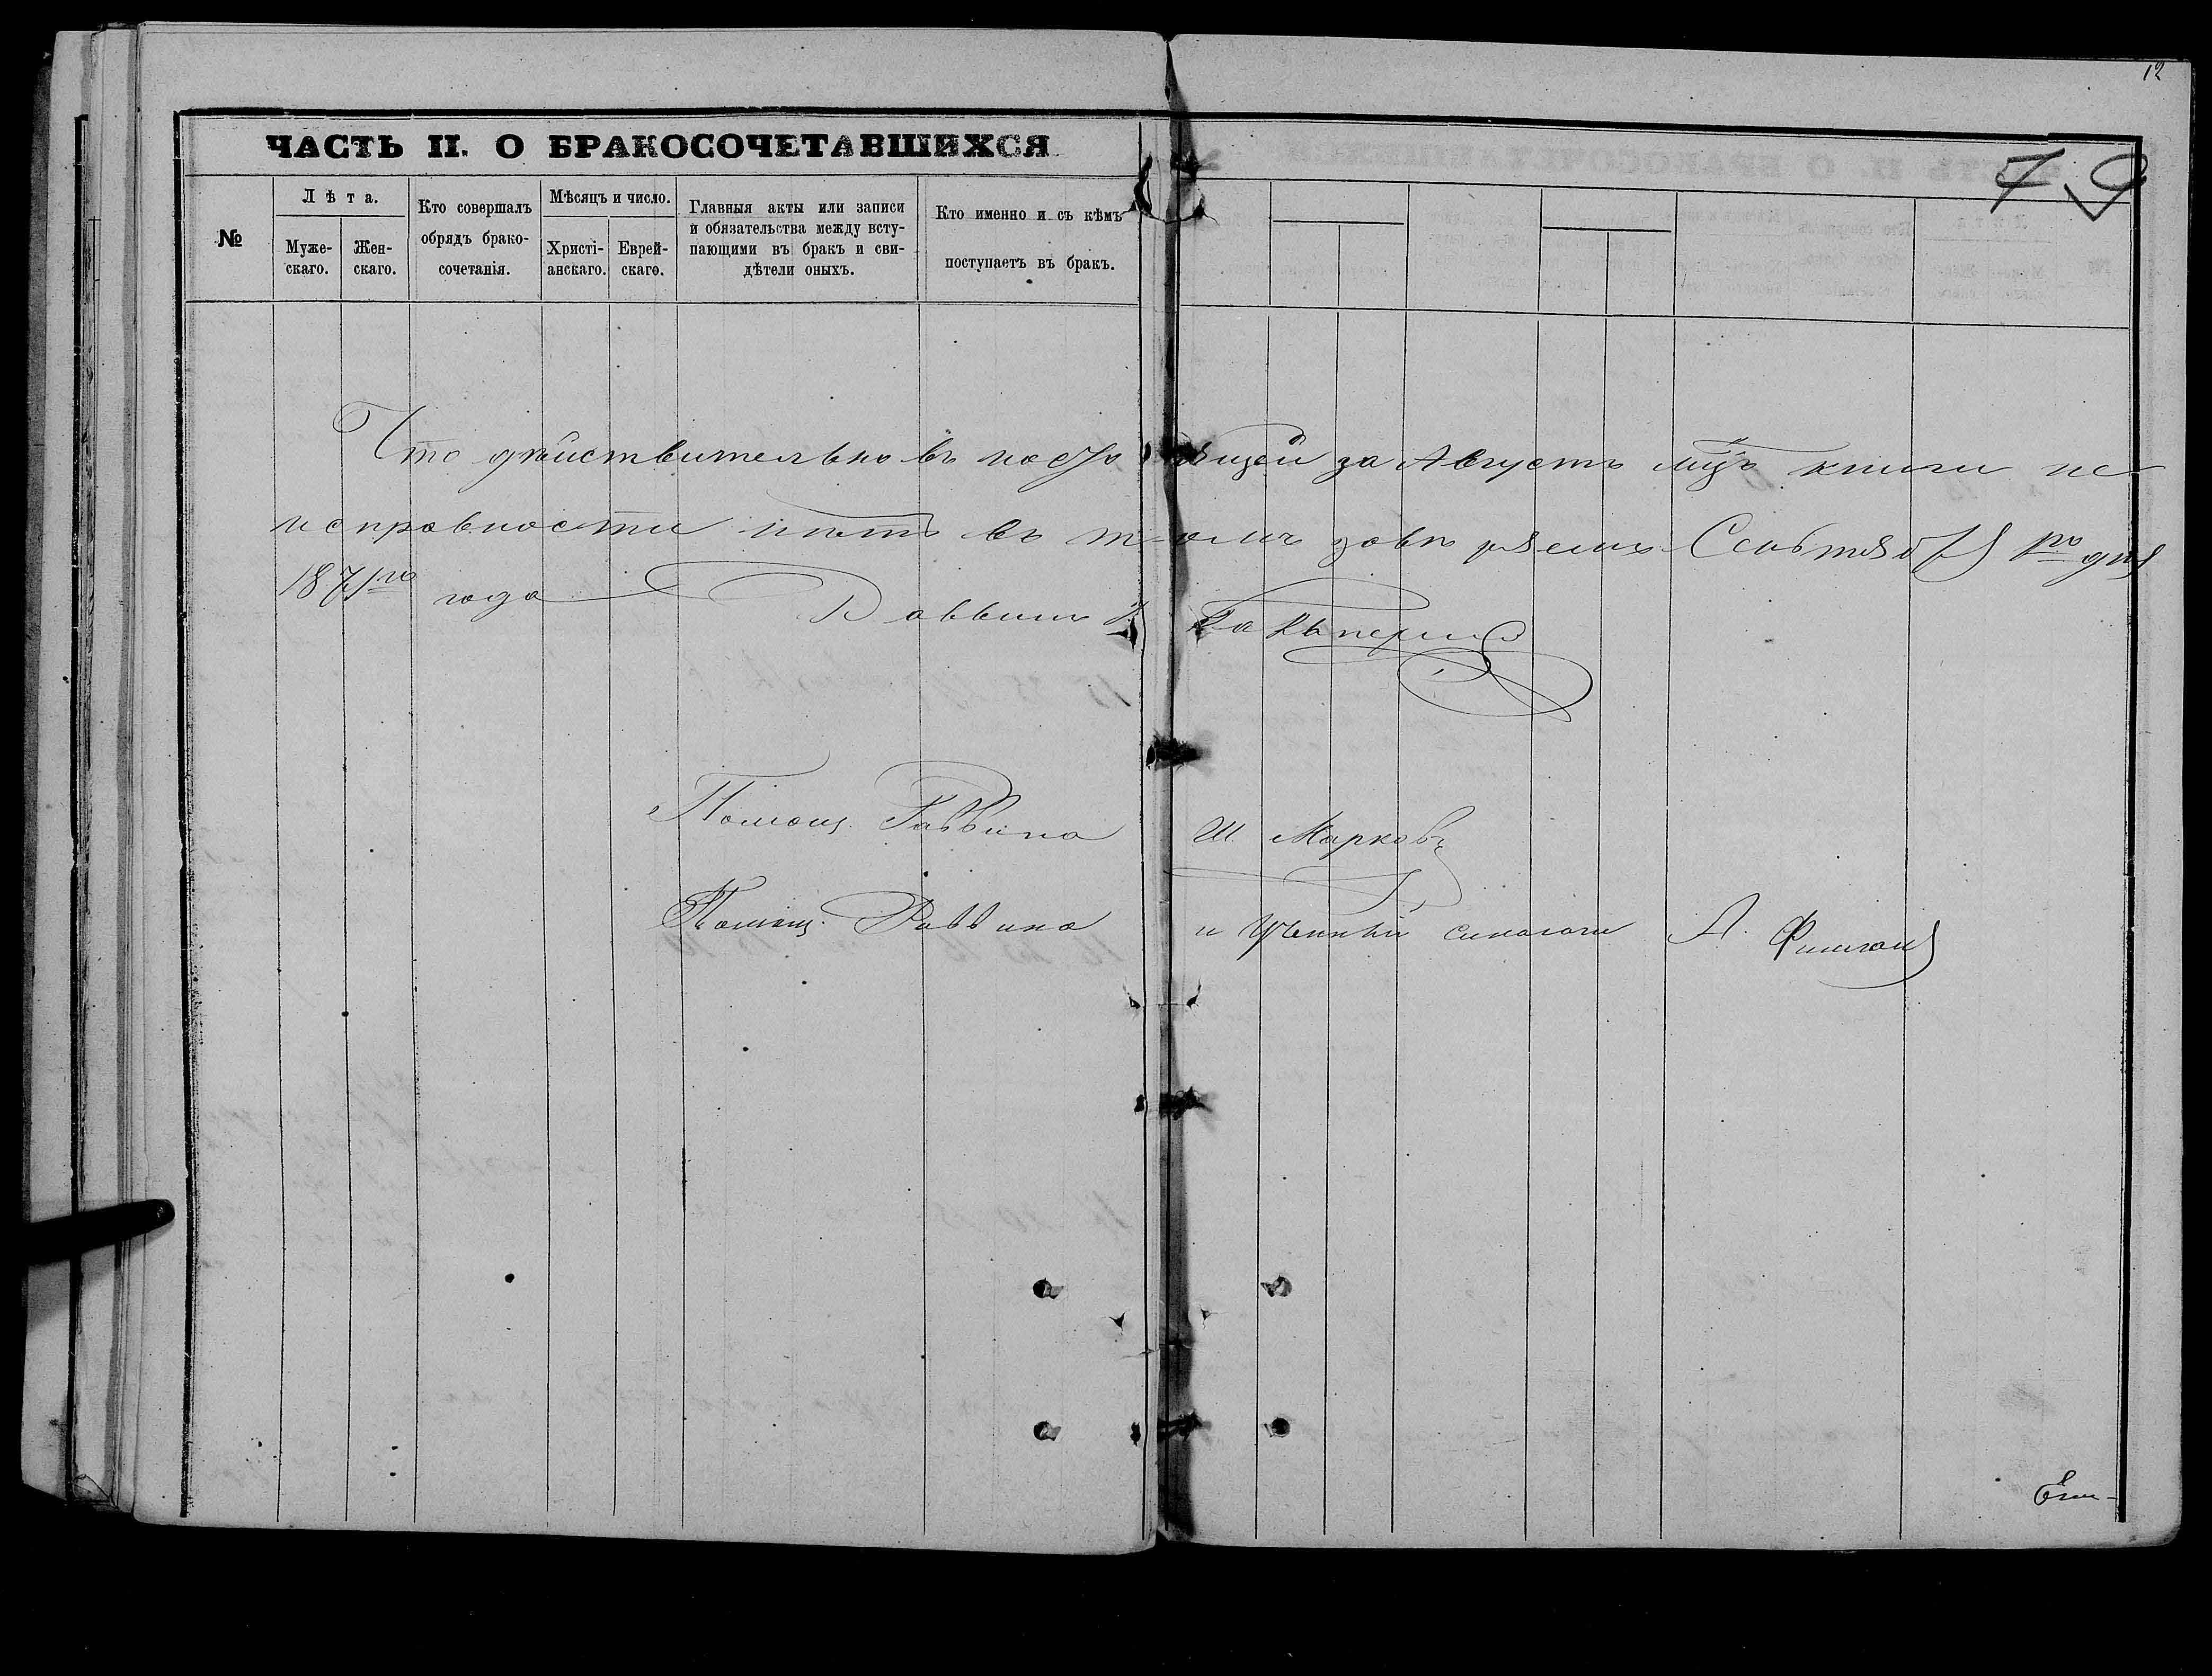 12
79
ЧАСТЬ II. О БРАКОСОЧЕТАВШИХСЯ
№
Лѣта.
Муже-
скаго.
Жен-
скаго.
Кто совершалъ
обрядъ брако-
сочетанія.
Мѣсяцъ и число.
Христі-
анскаго.
Еврей-
скаго.
Главныя акты или записи
и обязательства между всту-
пающими въ бракъ и сви-
дѣтели оныхъ.
Кто именно и съ кѣмъ
поступаетъ въ бракъ.
Что дѣйствительно въ настоящей за Августъ мцъ книги не-
исправности нѣтъ въ томъ завѣряемъ Сентября 1го дня
1871го года Раввинъ
Помощ. Раввина Ш. Марковъ
Помощ. Раввина и Ученый А.